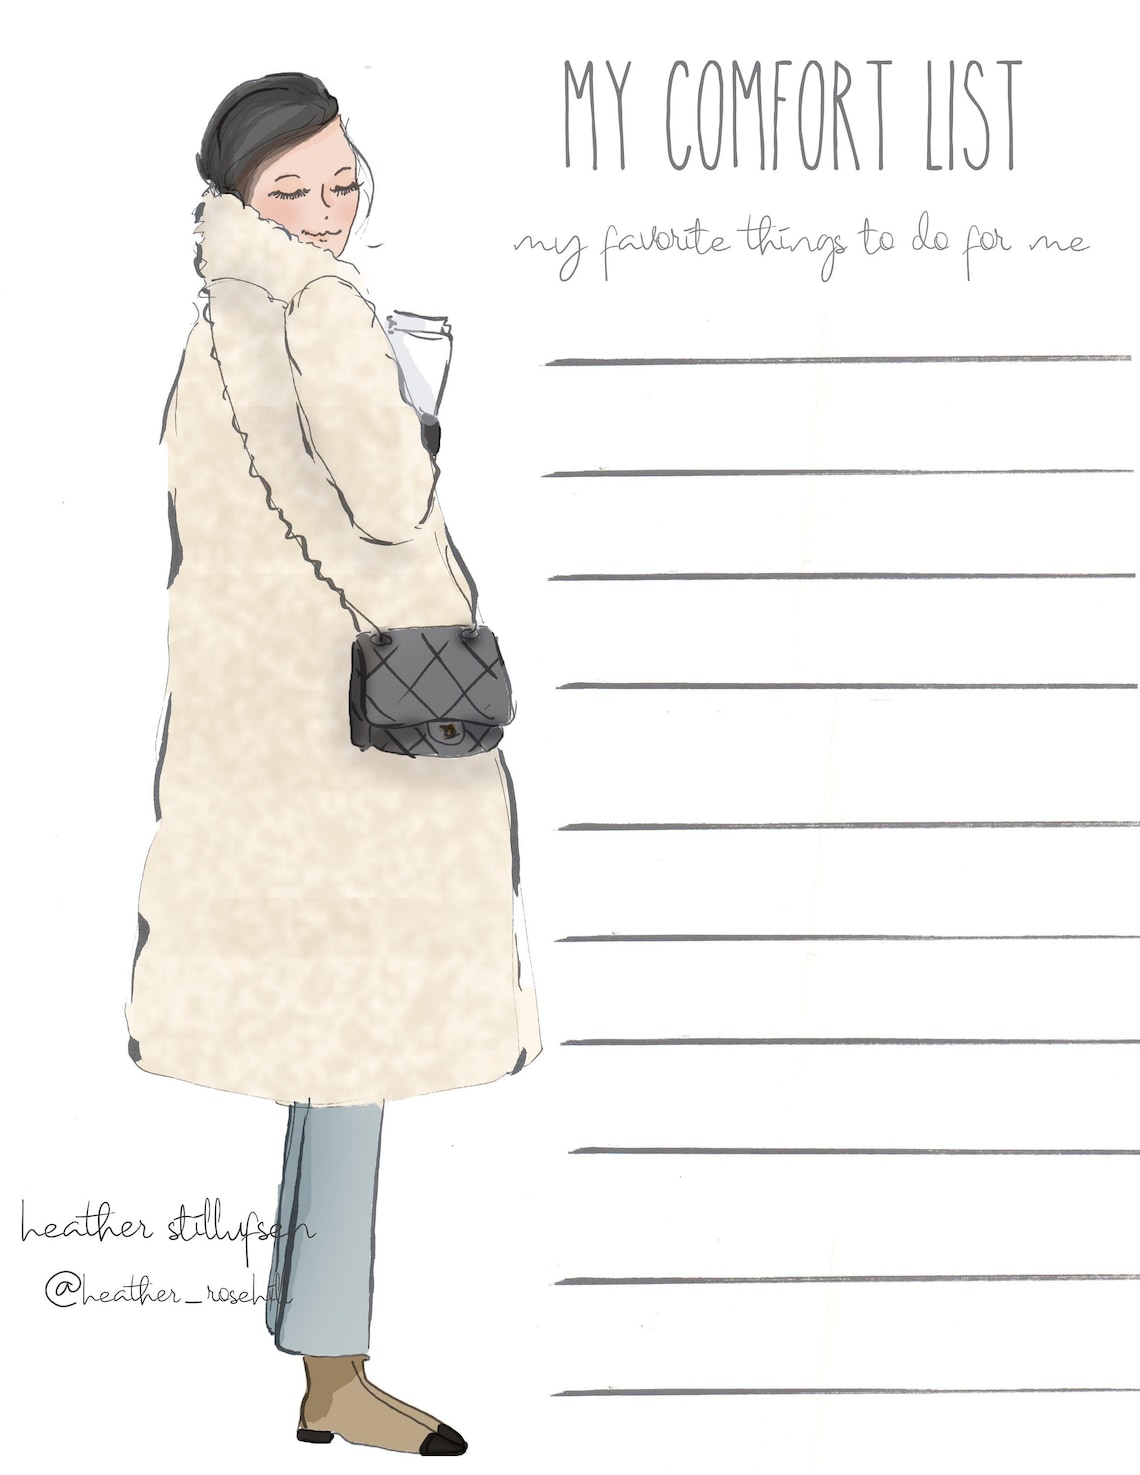 MY COMFORT LIST
my favorite things to do for me
heather stillufsen
@heather_rosehill